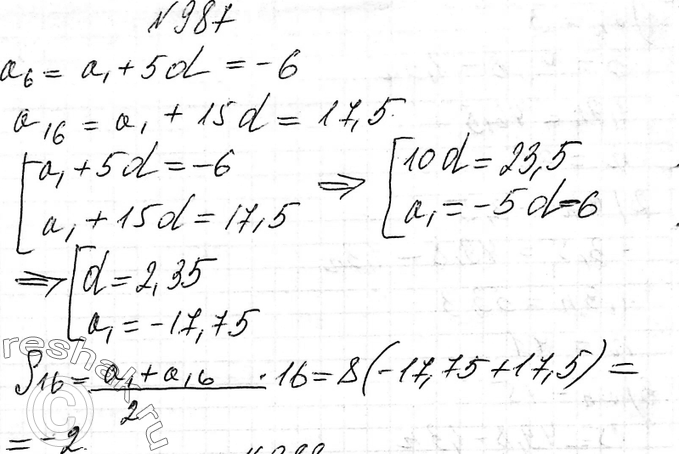 №987
a₆ = a₁ + 5d = -6
a₁₆ = a₁ + 15d = 17,5
[a₁ + 5d = -6 ⇒ [10d = 23,5
a₁ + 15d = 17,5 a₁ = -5d-6
⇒ [d = 2,35
a₁ = -17,75
S₁₆ = (a₁ + a₁₆)/2 · 16 = 8(-17,75 + 17,5) =
= -2.
reshak.ru